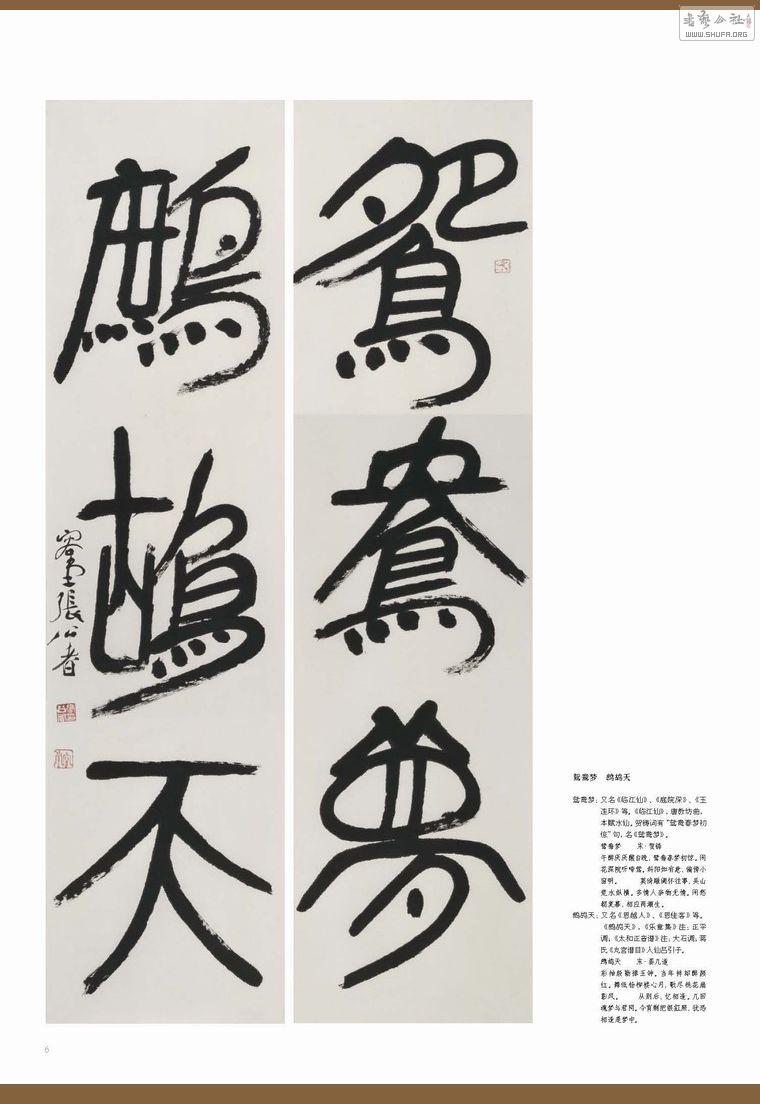 书艺公社
WWW.SHUFA.ORG
鸳鸯梦
鹧鸪天
容堂張公者
鸳鸯梦 鹧鸪天
鸳鸯梦：又名《临江仙》、《庭院深》、《玉
连环》等。《临江仙》，唐教坊曲，
本赋水仙。贺铸词有“鸳鸯春梦初
惊”句，名《鸳鸯梦》。
鸳鸯梦 宋·贺铸
午醉厌厌醒自晚，鸳鸯春梦初惊。闲
花深院听啼莺。斜阳如有意，偏傍小
窗明。 莫倚雕阑怀往事，吴山
楚水纵横。多情人奈物无情。闲愁
朝复暮，相应两潮生。
鹧鸪天：又名《思越人》、《思佳客》等。
《鹧鸪天》，《乐章集》注：正平
调；《太和正音谱》注：大石调；蒋
氏《九宫谱目》入仙吕引子。
鹧鸪天 宋·晏几道
彩袖殷勤捧玉钟。当年拚却醉颜
红。舞低杨柳楼心月，歌尽桃花扇
影风。 从别后，忆相逢。几回
魂梦与君同。今宵剩把银釭照，犹恐
相逢是梦中。
6